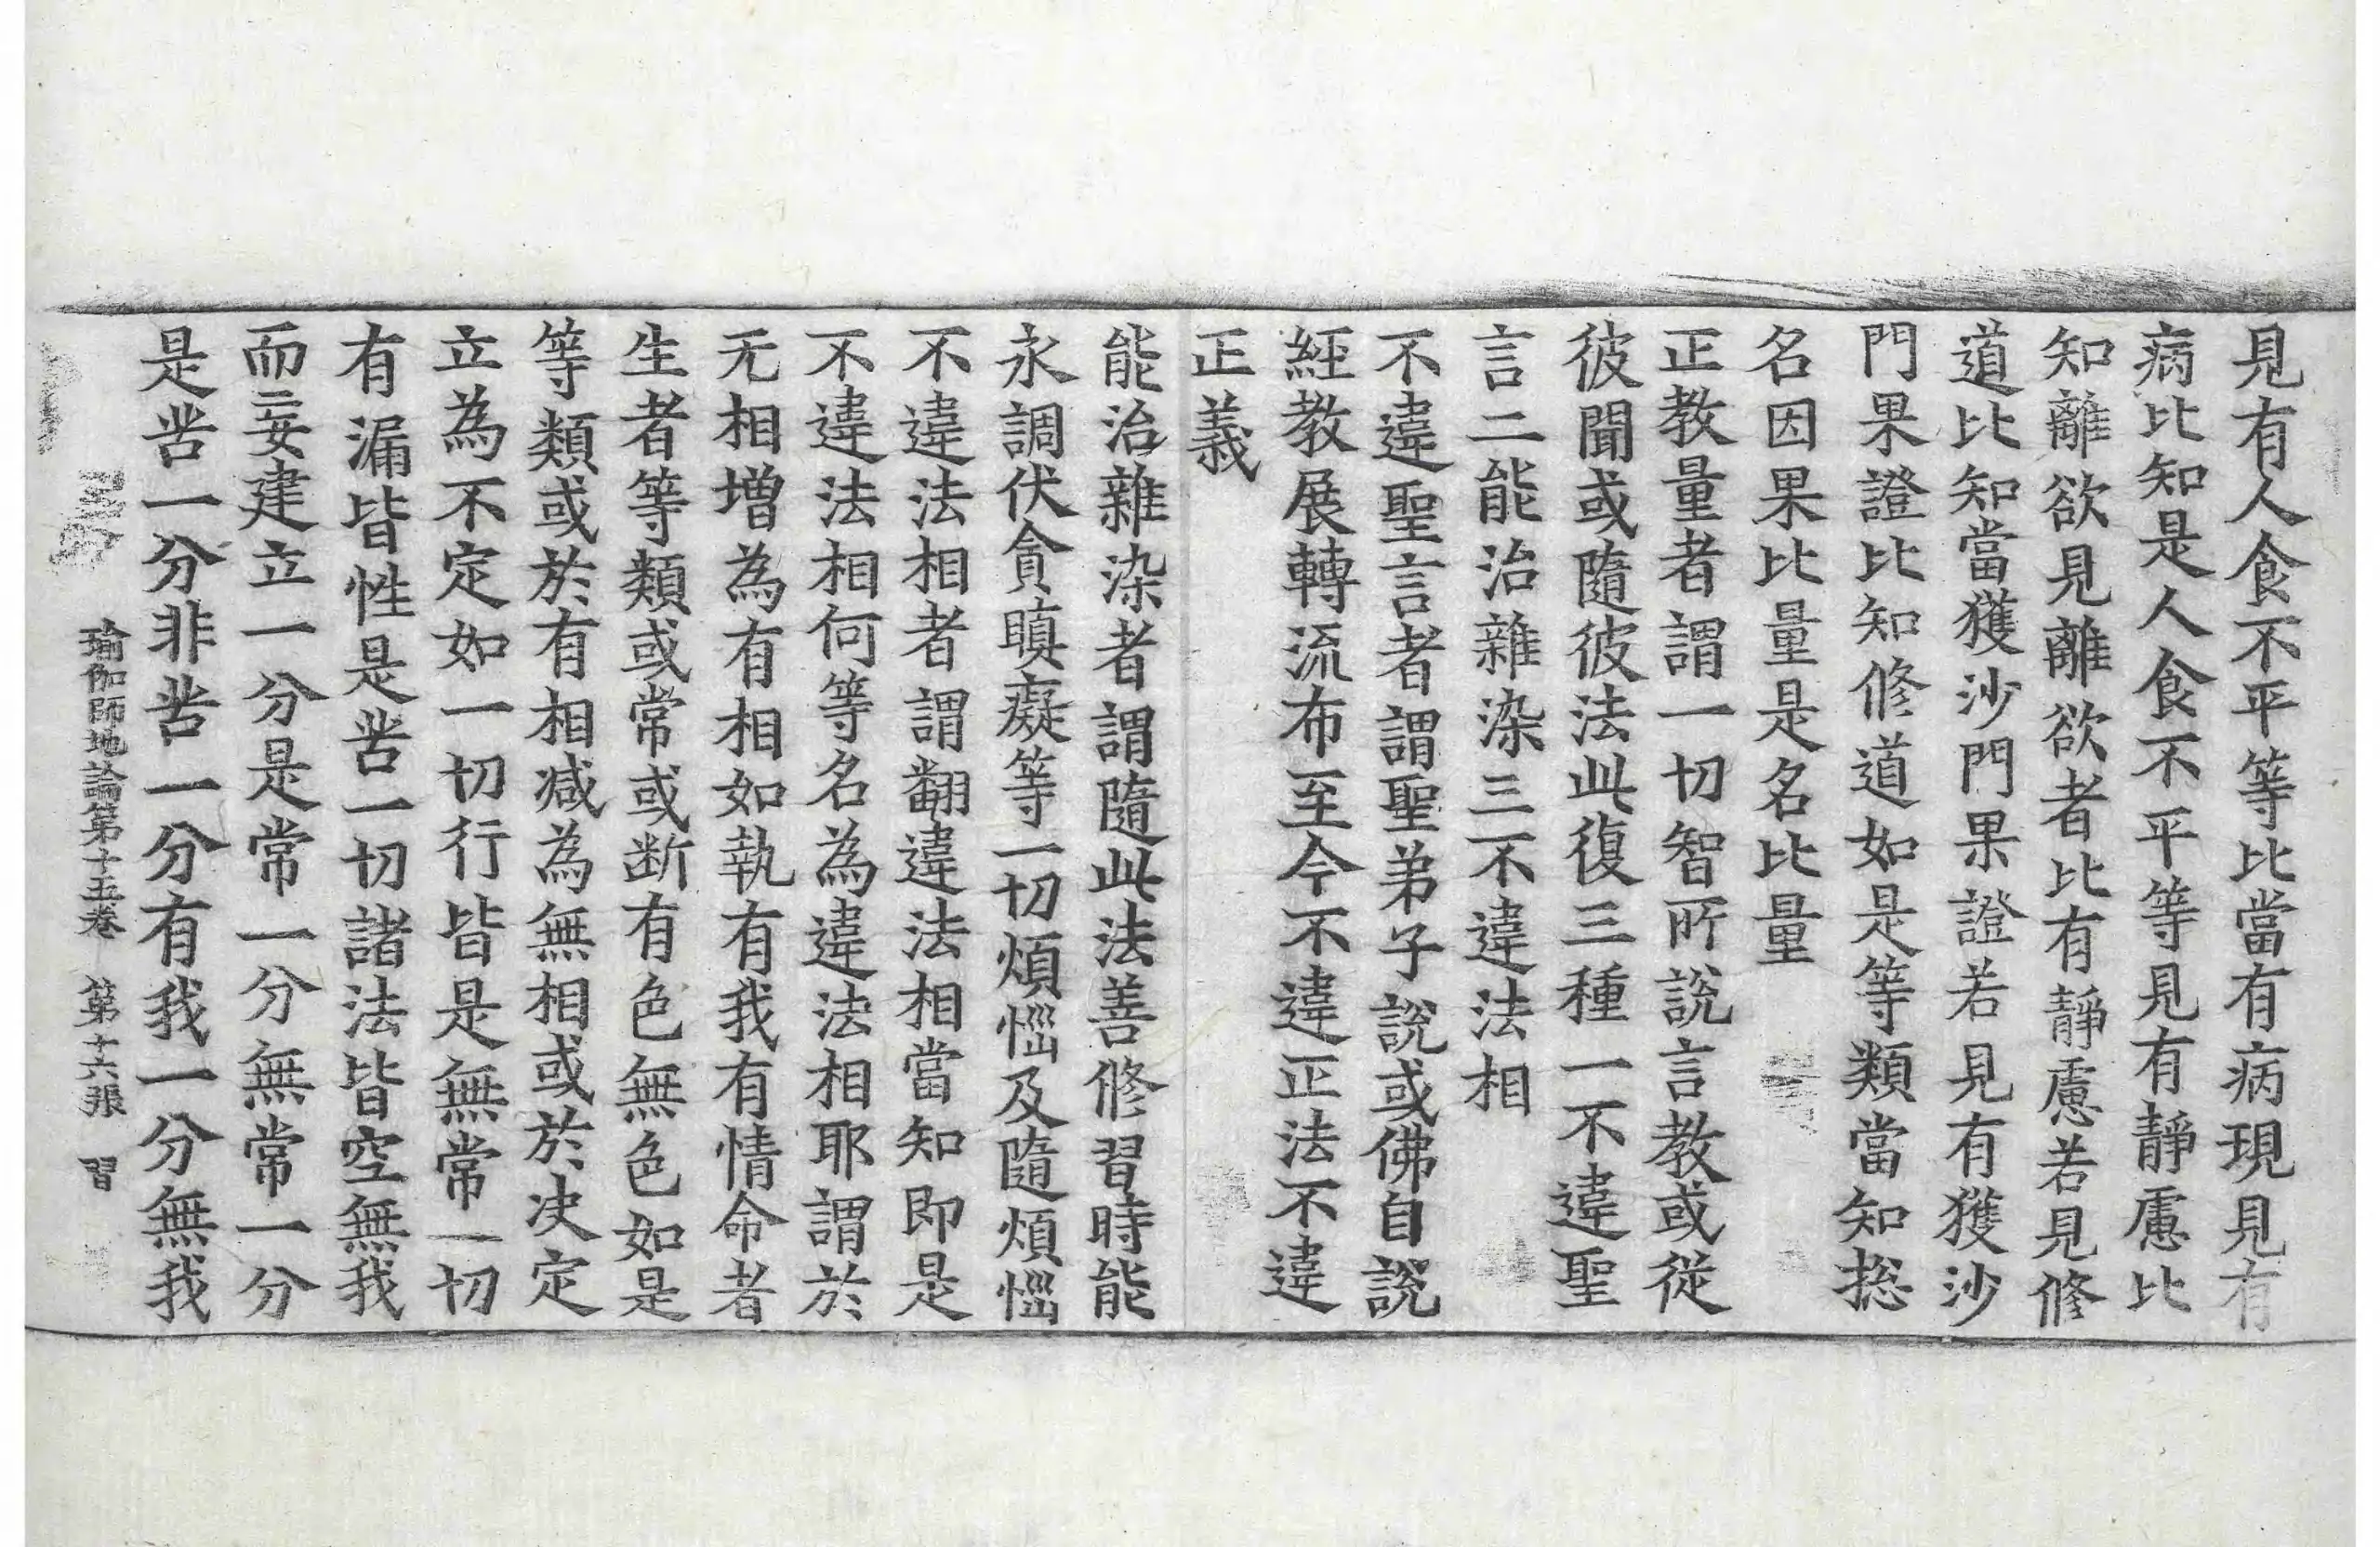 見有人食不平等比當有病現見有
病比知是人食不平等見有靜慮比
知離欲見離欲者比有靜慮若見修
道比知當獲沙門果證若見有獲沙
門果證比知修道如是等類當知捴
名因果比量是名比量
正教量者謂一切智所說言教或從
彼聞或隨彼法此復三種一不違聖
言二能治雜染三不違法相
不違聖言者謂聖弟子說或佛自說
經教展轉流布至今不違正法不違
正義
能治雜染者謂隨此法善修習時能
永調伏貪瞋癡等一切煩惱及隨煩惱
不違法相者謂翻違法相當知即是
不違法相何等名為違法相耶謂於
无相增為有相如執有我有情命者
生者等類或常或断有色無色如是
等類或於有相减為無相或於决定
立為不定如一切行皆是無常一切
有漏皆性是苦一切諸法皆空無我
而妄建立一分是常一分無常一分
是苦一分非苦一分有我一分無我
瑜伽師地論第十五卷 第十六張 習